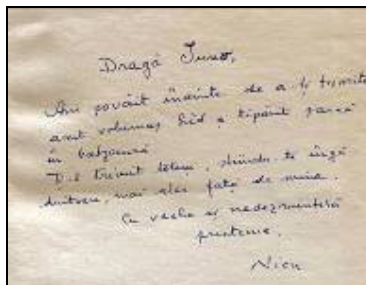 Dragă
Am șovăit înainte de a-ți trimite
acest volumaș tipărit parcă
în
trimit totuși, știindu-te îngă
duitoare, mai ales față de mine.
Cu veche și nedezmințită
prietenie,
Nicu